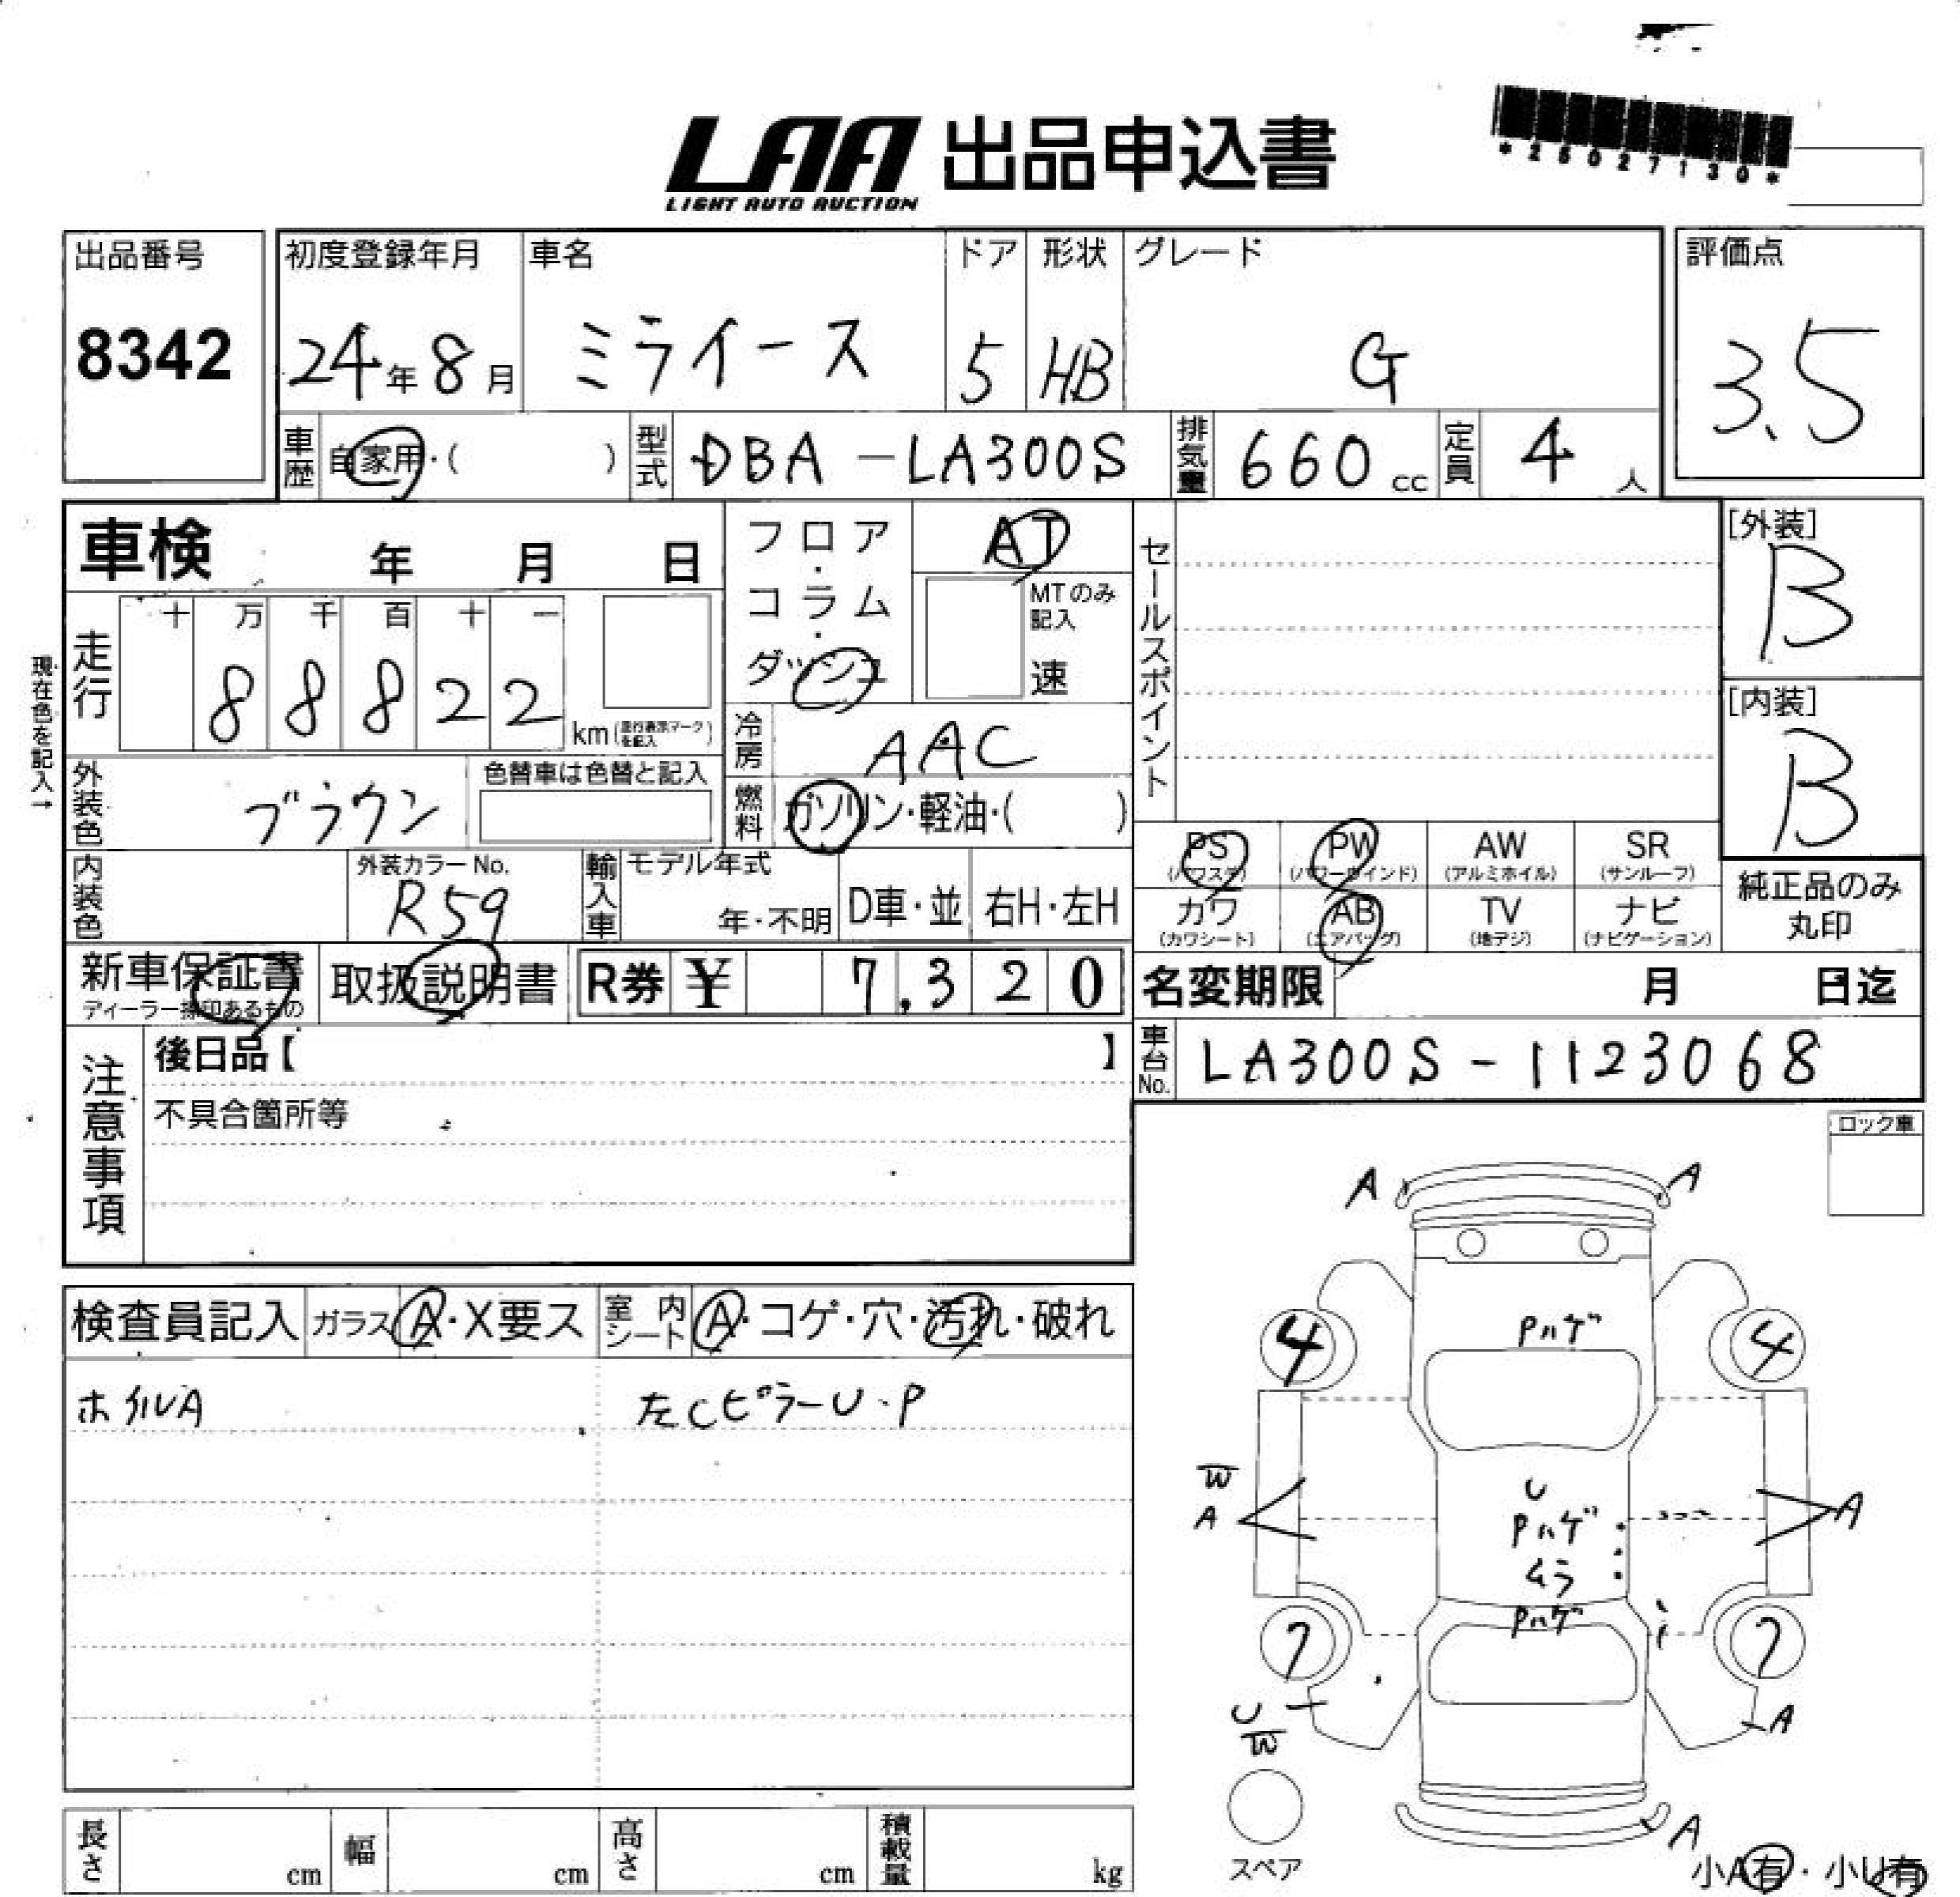 LAA 出品申込書
LIGHT AUTO AUCTION
*25027130*
出品番号
8342
初度登録年月
24年8月
車名
ミライース
ドア
5
形状
HB
グレード
G
評価点
3.5
車歴
自家用・( )
型式
DBA-LA300S
排気量
660 cc
定員
4 人
車検 年 月 日
フロア・コラム・ダッシュ
AT
MTのみ記入
速
セールスポイント
[外装]
B
[内装]
B
現在色を記入→
走行
十 万 千 百 十 一
8 8 8 2 2
km(走行表示マークを記入)
冷房
AAC
外装色
ブラウン
色替車は色替と記入
燃料
ガソリン・軽油・( )
PS (パワステ)
PW (パワーウインド)
AW (アルミホイル)
SR (サンルーフ)
カワ (カワシート)
AB (エアバッグ)
TV (地デジ)
ナビ (ナビゲーション)
純正品のみ
丸印
内装色
外装カラーNo.
R59
輸入車
モデル年式
年・不明
D車・並
右H・左H
新車保証書
取扱説明書
R券 ¥ 7,320
名変期限 月 日迄
注意事項
後日品【 】
不具合箇所等
車台No.
LA300S-1123068
ロック車
検査員記入
ガラス A・X要ス
室内シート A・コゲ・穴・汚れ・破れ
ホイルA
左CピラーU・P
A
A
Pハゲ
4
4
W
A
U
Pハゲ
ムラ
A
Pハゲ
7
7
U
W
A
A
スペア
小A有・小U有
長さ cm
幅 cm
高さ cm
積載量 kg